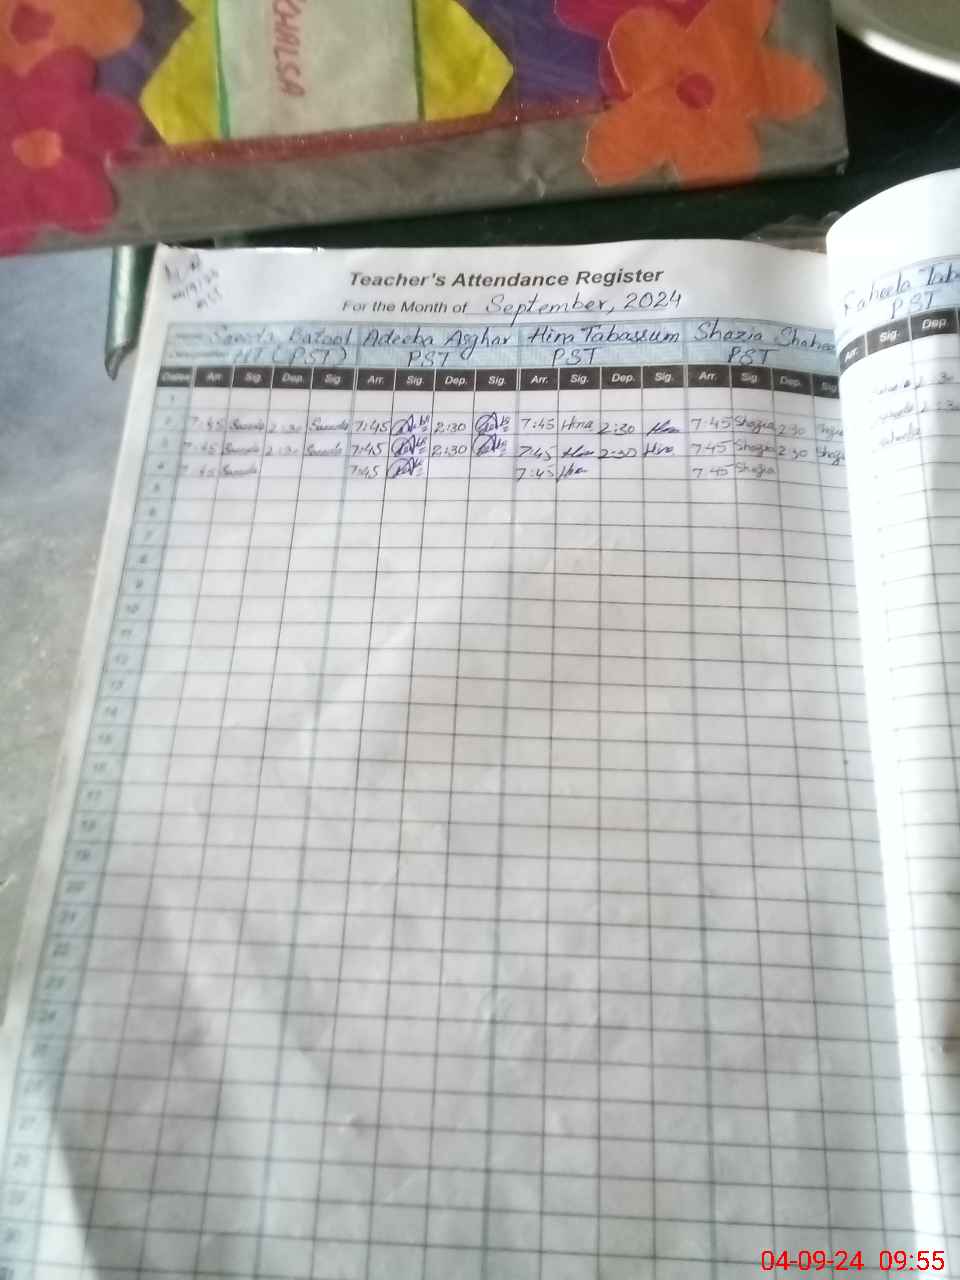 KHALSA
Teacher's Attendance Register
For the Month of September, 2024
Batool Adeeba Asghar Hina Tabassum Shazia Shahee
HT (PST) PST PST PST
Dates Arr. Sig. Dep. Sig. Arr. Sig. Dep. Sig. Arr. Sig. Dep. Sig. Arr. Sig. Dep. Sig
1
2 7:45 2:30 7:45 2:30 7:45 Hina 2:30 Hina 7:45 Shazia 2:30 Shazia
3 7:45 2:30 7:45 2:30 7:45 Hina 2:30 Hina 7:45 Shazia 2:30 Shazia
4 7:45 7:45 7:45 Hina 7:45 Shazia
5
6
7
8
9
10
11
12
13
14
15
16
17
18
19
20
21
22
23
24
25
26
27
28
29
30
Raheela Tab
PST
Arr. Sig. Dep.
2:30
2:30
04-09-24 09:55